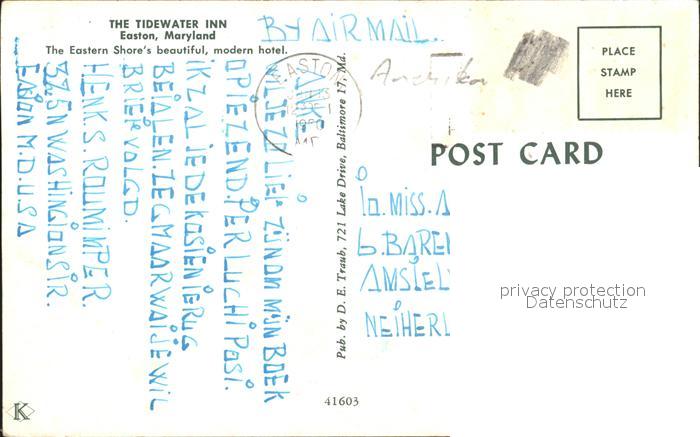 THE TIDEWATER INN
Easton, Maryland
The Eastern Shore's beautiful, modern hotel.
BY AIR MAIL.
PLACE
STAMP
HERE
EASTON
POST CARD
ANKE
WIL JE ZO LIEF ZÜNOM MÜN BOEK
OP IE ZEND. PER LUCHT POST.
IK ZAL JE DE KOSTEN TERUG
BETALEN. ZEG MAAR WAT JE WIL
BRIEF VOLGD.
HENK. S. ROUMIMPER.
325 N WASHINGTON STR.
EASTON M.D. U.S.A
Pub. by D. E. Traub, 721 Lake Drive, Baltimore 17, Md.
MISS. A
6. BARE
AMSTEL
NETHERL
privacy protection
Datenschutz
41603
K